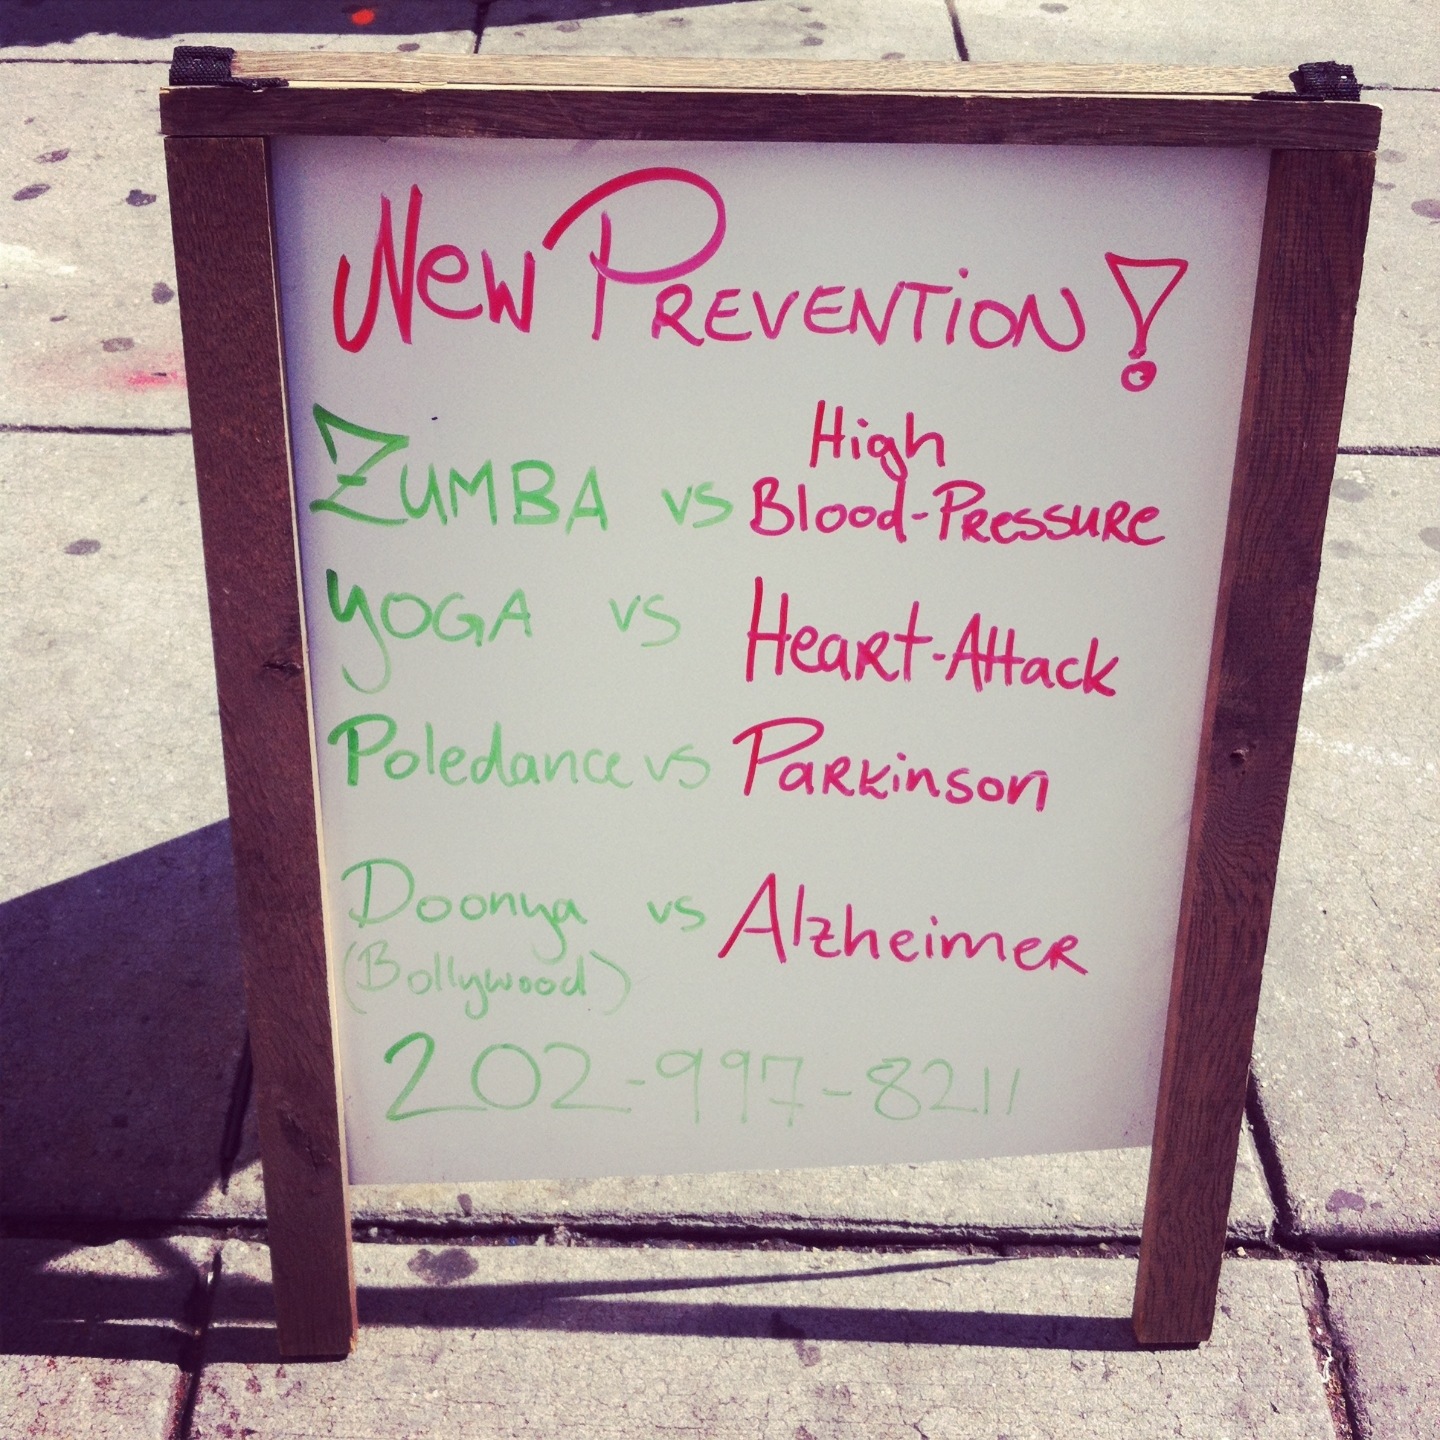 New Prevention!
Zumba vs High Blood-Pressure
Yoga vs Heart-Attack
Poledance vs Parkinson
Doonya vs Alzheimer
(Bollywood)
202-997-8211